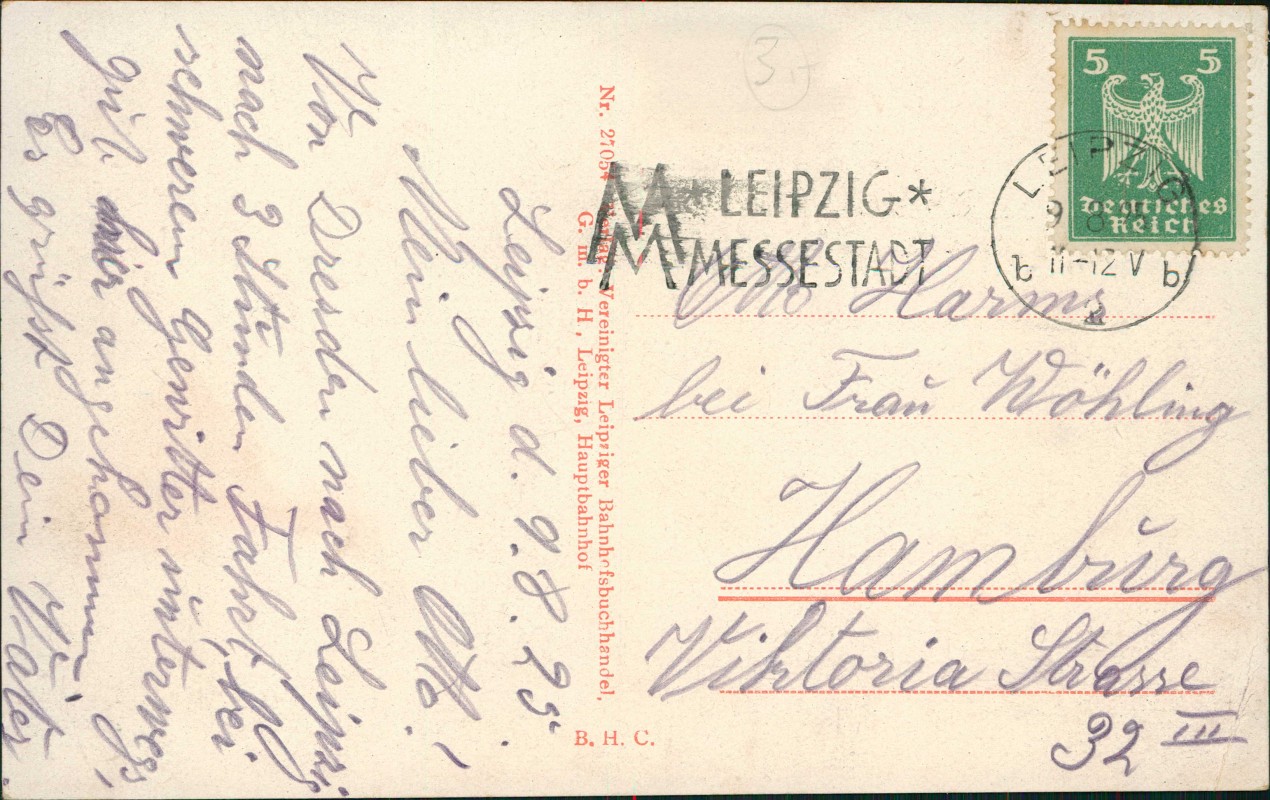 Leipzig d. 9.8.25.
Mein lieber Otto!
Von Dresden nach Leipzig
nach 3 Stunden Fahrt, bei
schwerem Gewitter unterwegs,
gut hier angekommen!
Es grüßt Dein Vater.
Nr. 27054 Verlag: Vereinigter Leipziger Bahnhofsbuchhandel,
G. m. b. H., Leipzig, Hauptbahnhof
B. H. C.
3.-
MM *LEIPZIG*
MESSESTADT
5 5
Deutsches
Reich
LEIPZIG
9 8
b 11-12 V b
2
Otto Harms
bei Frau Wöhling
Hamburg
Viktoria Strasse
32 III